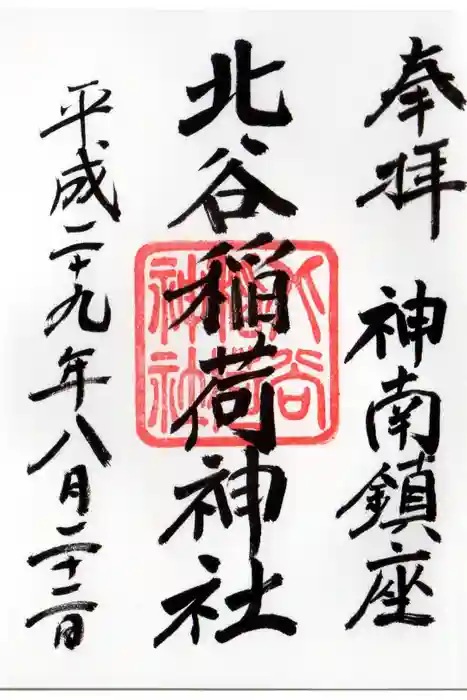 奉拝 神南鎮座
北谷稲荷神社
平成二十九年八月二十二日
谷
神社